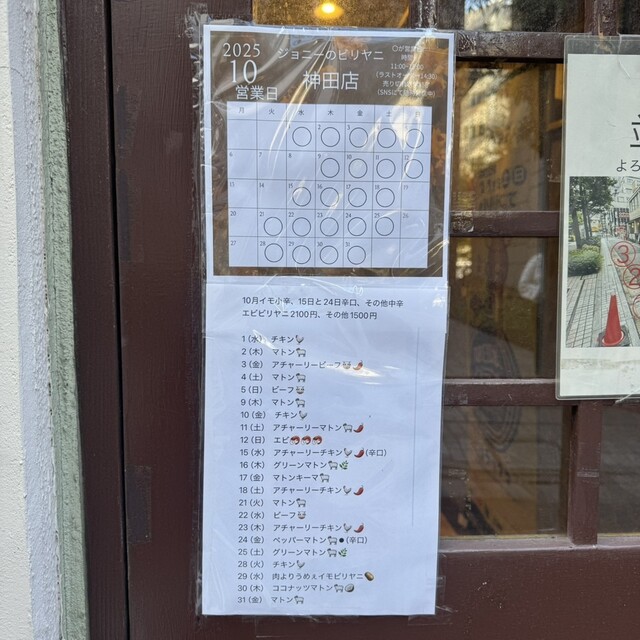 2025
10
営業日
ジョニーのビリヤニ
神田店
〇が営業
11:00~
(ラストオーダー14:30)
売り
(SNSにて
月 火 水 木 金 土
1 2 3 4 5
6 7 8 9 10 11 12
15 14 15 16 17 18 19
20 21 22 23 24 25 26
27 28 29 30 31
10月イモ小辛、15日と24日辛口、その他中辛
エビビリヤニ2100円、その他1500円
1(水) チキン🐓
2(木) マトン🐑
3(金) アチャーリービーフ🐮🌶️
4(土) マトン🐑
5(日) ビーフ🐮
9(木) マトン🐑
10(金) チキン🐓
11(土) アチャーリーマトン🐑🌶️
12(日) エビ🦐🦐🦐
15(水) アチャーリーチキン🐓🌶️(辛口)
16(木) グリーンマトン🐑🌿
17(金) マトンキーマ🐑
18(土) アチャーリーチキン🐓🌶️
21(火) マトン🐑
22(水) ビーフ🐮
23(木) アチャーリーチキン🐓🌶️
24(金) ペッパーマトン🐑⚫(辛口)
25(土) グリーンマトン🐑🌿
28(火) チキン🐓
29(水) 肉よりうめぇイモビリヤニ🥔
30(木) ココナッツマトン🐑🥥
31(金) マトン🐑
よろ
③